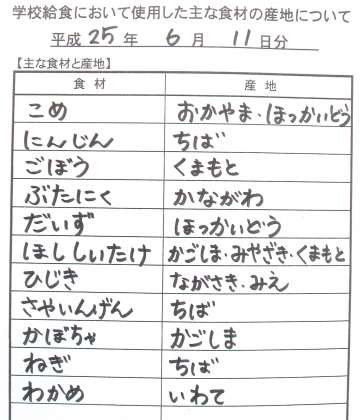 学校給食において使用した主な食材の産地について
平成 25 年 6 月 11 日分
【主な食材と産地】
食材 産地
こめ おかやま・ほっかいどう
にんじん ちば
ごぼう くまもと
ぶたにく かながわ
だいず ほっかいどう
ほししいたけ かごしま・みやざき・くまもと
ひじき ながさき・みえ
さやいんげん ちば
かぼちゃ かごしま
ねぎ ちば
わかめ いわて